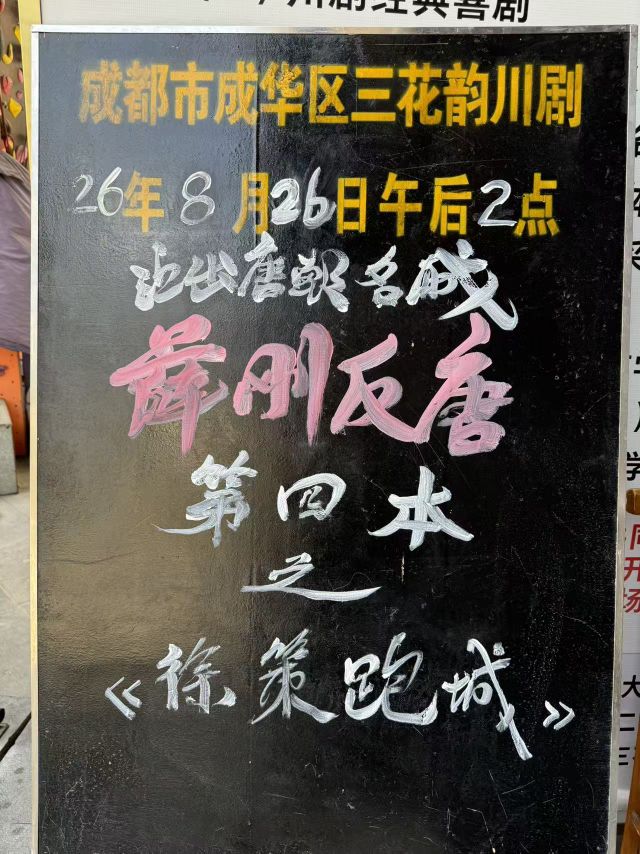 川剧经典喜剧
成都市成华区三花韵川剧
26年8月26日午后2点
演出唐朝名戏
薛刚反唐
第四本
之
《徐策跑城》